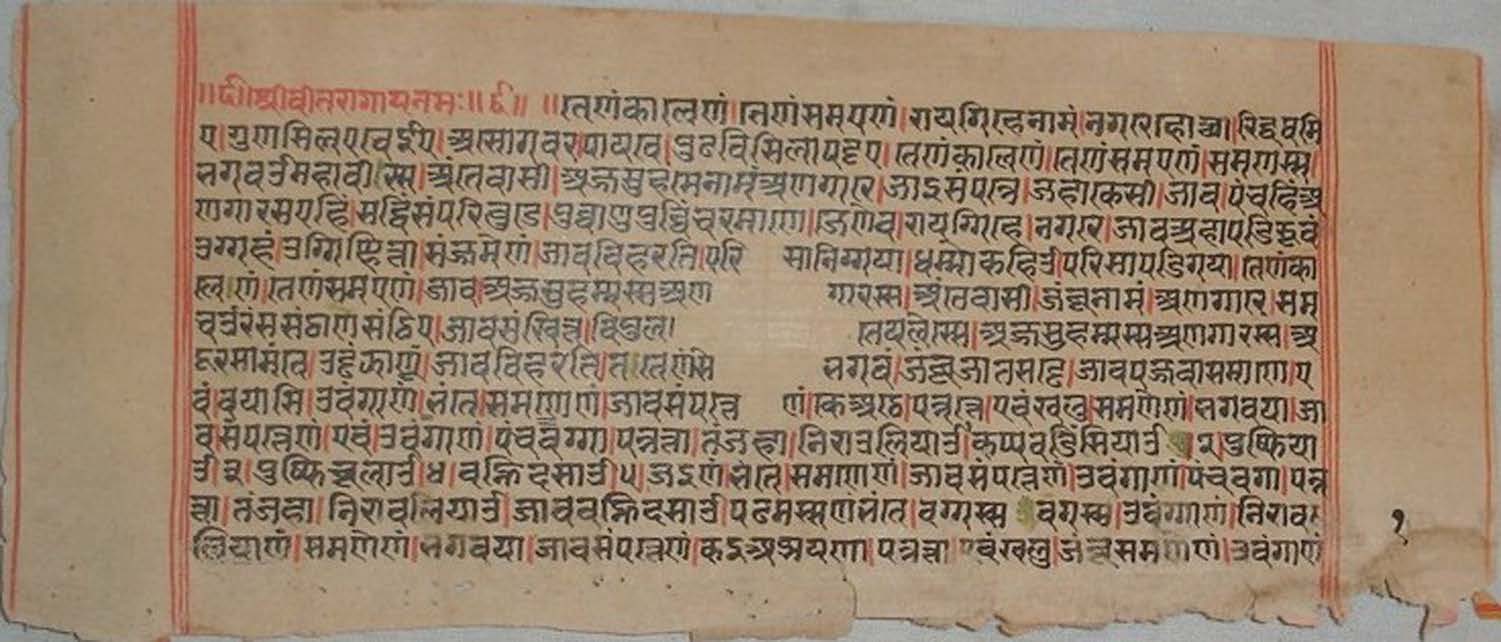 ॥ दी॥ श्रीवीतरागायनमः॥ ६॥ ॥तेणंकालेणं।तेणंसमएणं।रायगिहेनामं।नगरेहोच्चा।रिद्धछमि
ए।गुणसिलएचेइए।असोगवरपायवे।पुढविसिलापट्टए।तेणंकालेणं।तेणंसमएणं।समणस्स।
भगवउमहावीरस्स।अंतेवासी।अज्जसुहम्मेनामंअणगारे।जाइसंपन्ने।जहाकेसी।जाव।पंचहिंअ
णगारसएहिं।सद्धिसंपरिवुडे।पुव्वाणुपुव्विंचरमाणे।जेणेव।रायगिहे।नगरे।जावअहापडिरूवं
उग्गहं।उग्गिण्हित्ता।संजमेणं।जावविहरति।परि सानिग्गया।धम्मोकहिउ।परिसापडिगया।तेणंका
लेणं।तेणंसमएणं।जाव।अज्जसुहम्मस्सअण गारस्स।अंतेवासी।जंबूनामं।अणगारे।सम
चउरंससंठाणसंठिए।जावसंखित्त।विपुल। तेयलेस्से।अज्जसुहम्मस्सअणगारस्स।अ
दूरसामंते।उड्ढंजाणू।जावविहरति।तएणंसे भगवं।जंबूजातसड्ढे।जावपज्जुवासमाणे।ए
वंवयासि।उवंगाणं।भंते।समणेणं।जावसंपत्ते णं।केअठेपन्नत्ते।एवंखलु।समणेणं।भगवया।जा
वसंपत्तेणं।एवं।उवंगाणं।पंचवग्गा।पन्नत्ता।तंजहा।निरयाउलियाउ।कप्पवडिंसियाउ २।पुप्फिया
उ ३।पुप्फिचूलाउ।४।वह्निदसाउ।५।जइणंभंते।समणेणं।जावसंपत्तेणं।उवंगाणं।पंचवगा।पन्न
त्ता।तंजहा।निरयावलियाउ।जाववह्निदसाउ।पढमस्सणंभंते।वग्गस्स वगस्स।उवंगाणं।निरयाव
लियाणं।समणेणं।भगवया।जावसंपत्तेणं।कइअझयणा।पन्नत्ता एवंखलु।जंबूसमणेणं।उवंगाणं
१